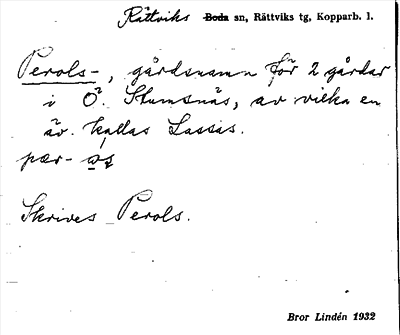 Rättviks Boda sn, Rättviks tg, Kopparb. l.
Perols-, gårdsnamn för 2 gårdar
i Ö. Stumsnäs, av vilka en
äv. kallas Lassis.
pær- ås
Skrives Perols.
Bror Lindén 1932